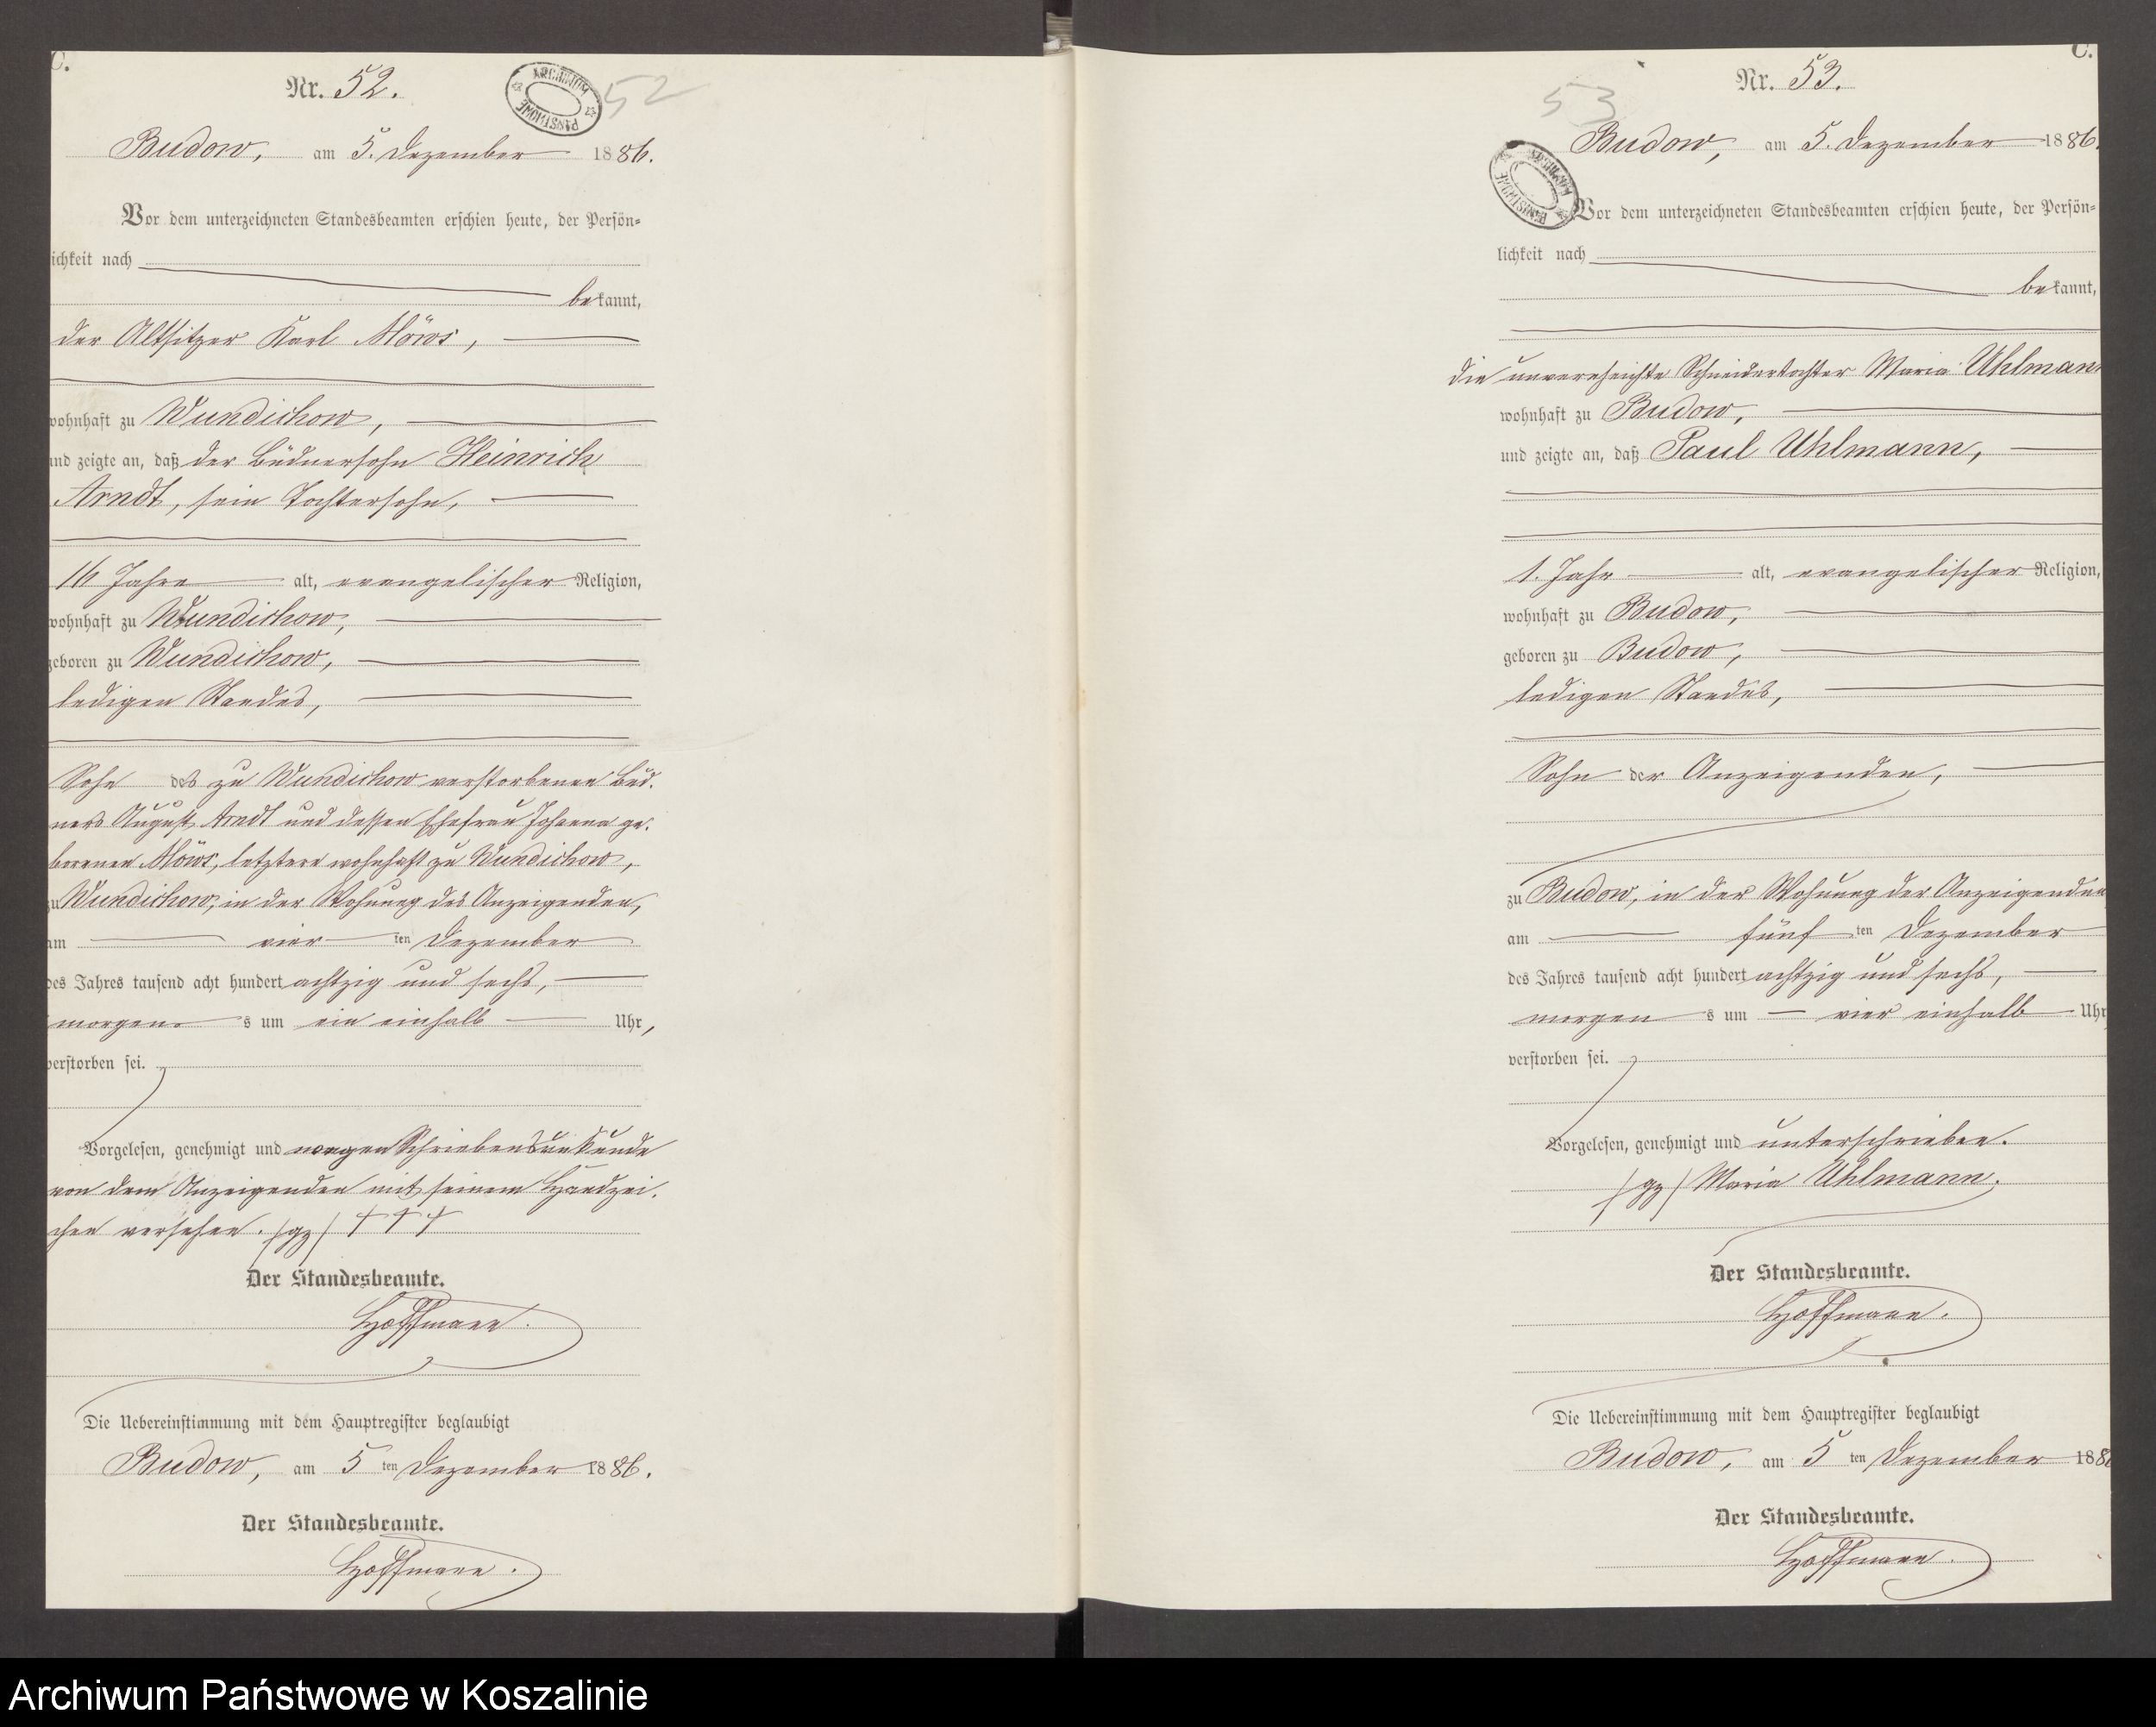 C.
Nr. 52.
ARCHIWUM PAŃSTWOWE
52
Budow, am 5. Dezember 1886.
Vor dem unterzeichneten Standesbeamten erschien heute, der Persön-
ichkeit nach
bekannt,
der Altsitzer Karl Möws,
wohnhaft zu Wundichow,
und zeigte an, daß der Büdnersohn Heinrich
Arndt, sein Tochtersohn,
16 Jahre alt, evangelischer Religion,
wohnhaft zu Wundichow,
geboren zu Wundichow,
ledigen Standes,
Sohn des zu Wundichow verstorbenen Büd-
ners August Arndt und dessen Ehefrau Johanna ge-
borenen Möws, letztere wohnhaft zu Wundichow,
zu Wundichow, in der Wohnung des Anzeigenden,
am vier ten Dezember
des Jahres tausend acht hundert achtzig und sechs,
morgens um ein einhalb Uhr,
verstorben sei.
Vorgelesen, genehmigt und wegen Schreibensunkunde
von dem Anzeigenden mit seinem Handzei-
chen versehen. (gz) † † †
Der Standesbeamte.
Hoffmann.
Die Uebereinstimmung mit dem Hauptregister beglaubigt
Budow, am 5 ten Dezember 1886.
Der Standesbeamte.
Hoffmann.
C.
Nr. 53.
53
Budow, am 5. Dezember 1886.
ARCHIWUM PAŃSTWOWE
Vor dem unterzeichneten Standesbeamten erschien heute, der Persön-
lichkeit nach
bekannt,
die unverehelichte Schneidertochter Maria Uhlmann
wohnhaft zu Budow,
und zeigte an, daß Paul Uhlmann,
1. Jahr alt, evangelischer Religion,
wohnhaft zu Budow,
geboren zu Budow,
ledigen Standes,
Sohn der Anzeigenden,
zu Budow, in der Wohnung der Anzeigenden
am fünf ten Dezember
des Jahres tausend acht hundert achtzig und sechs,
morgens um vier einhalb Uhr
verstorben sei.
Vorgelesen, genehmigt und unterschrieben.
(gz) Maria Uhlmann.
Der Standesbeamte.
Hoffmann.
Die Uebereinstimmung mit dem Hauptregister beglaubigt
Budow, am 5 ten Dezember 1886
Der Standesbeamte.
Hoffmann.
Archiwum Państwowe w Koszalinie